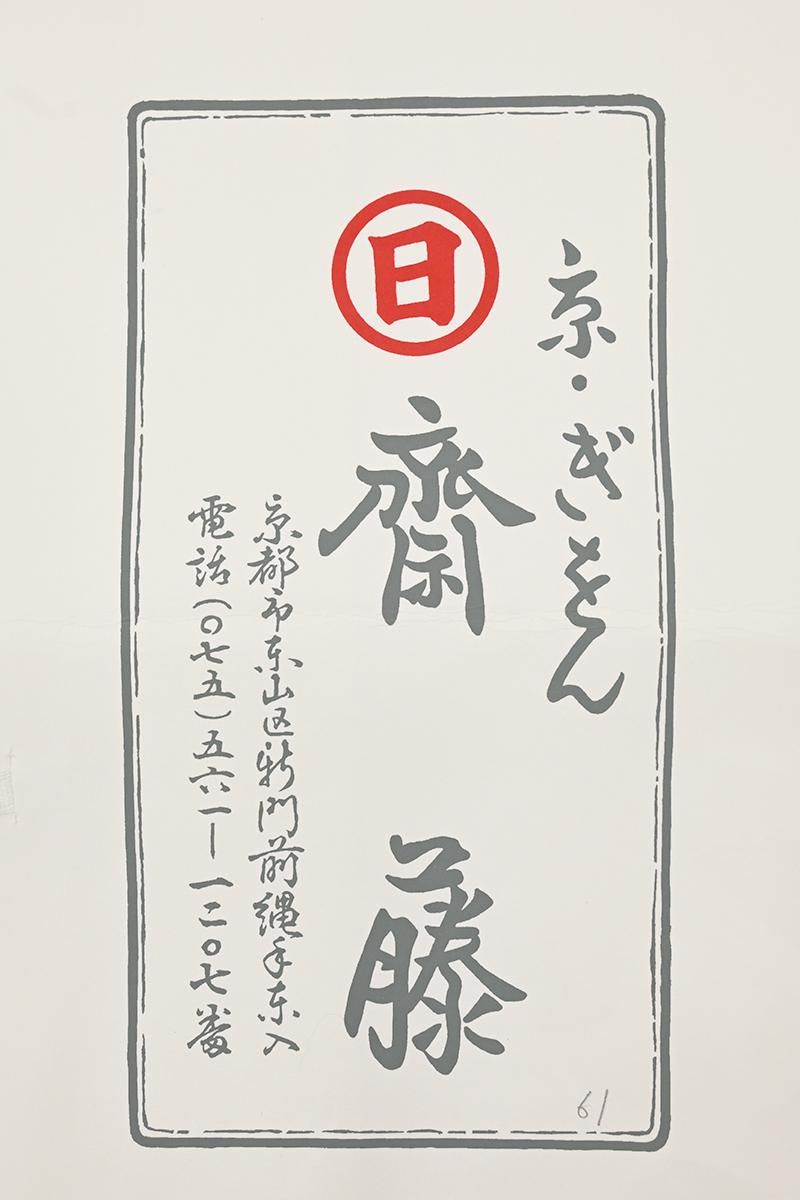 京・ぎをん
日
齋藤
京都市东山区新門前縄手东入
電話(〇七五)五六一ー一二〇七番
61